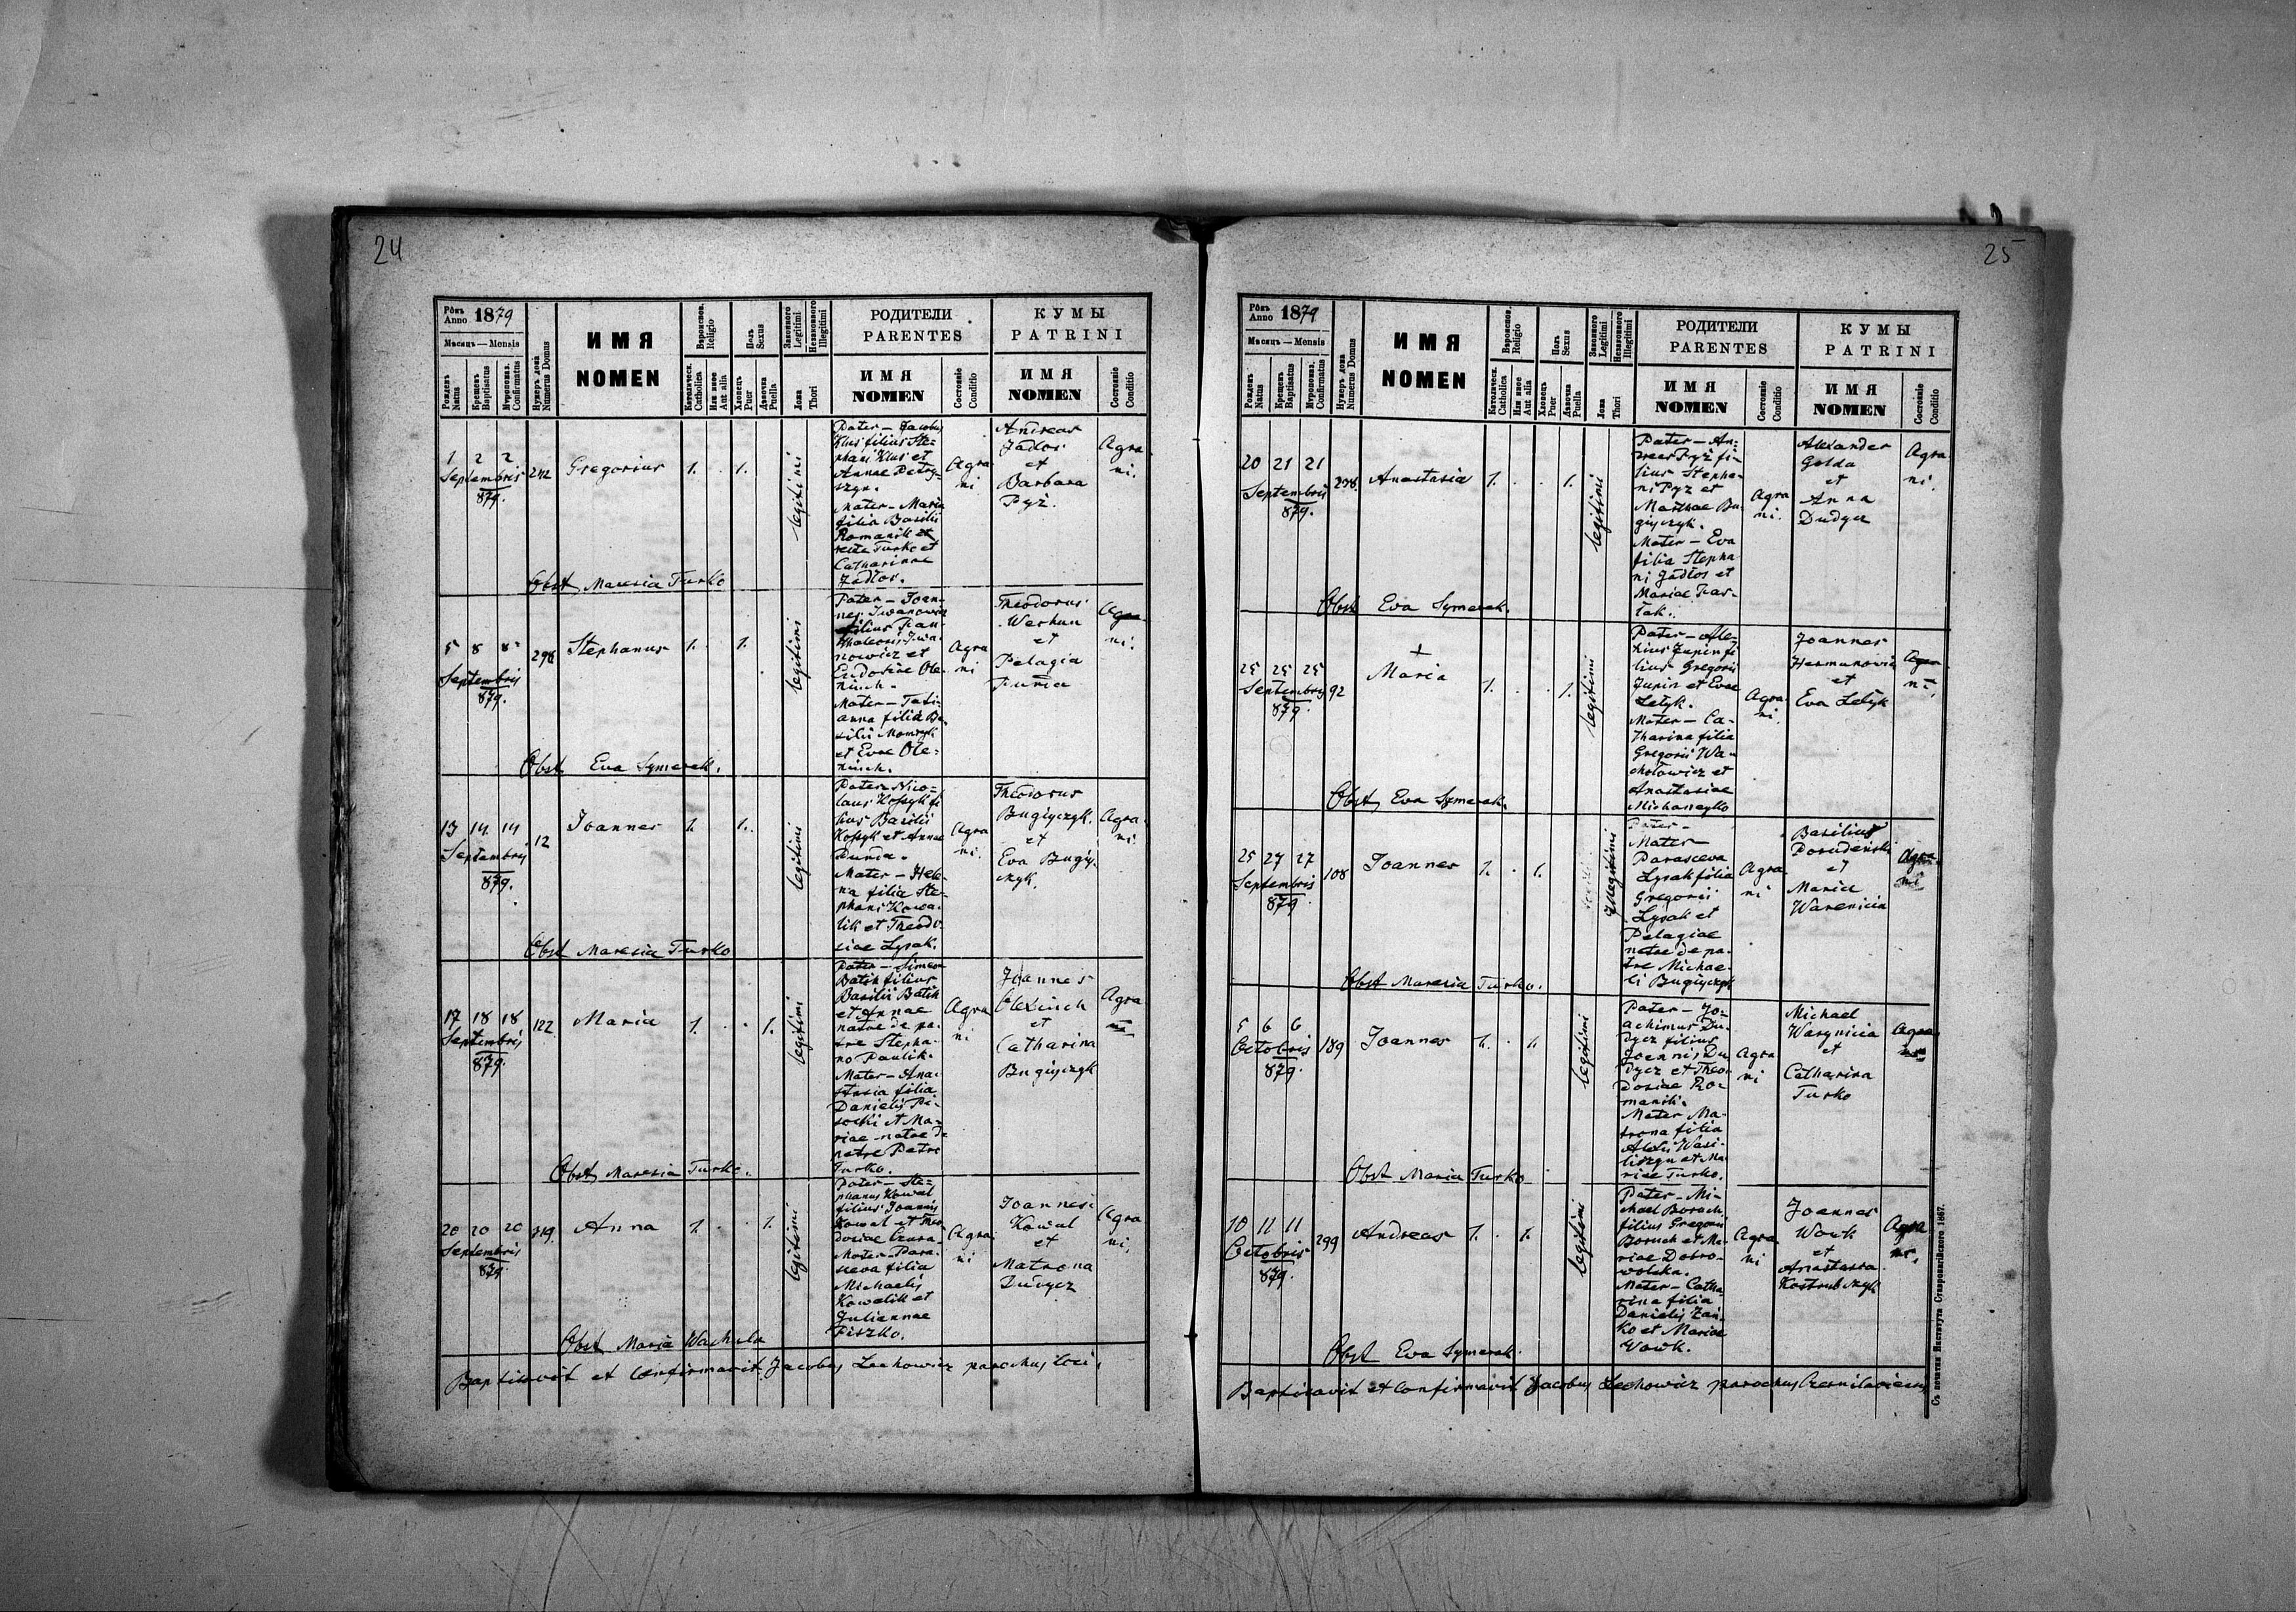 24
Рôкъ Anno 1879
Мѣсяць — Mensis
Рожденъ Natus
Крещенъ Baptisatus
Мѵропомаз. Confirmatus
Нумеръ дома Numerus Domus
ИМЯ
NOMEN
Вѣроиспов. Religio
Католическ. Catholica
Или иное Aut alia
Полъ Sexus
Хлопець Puer
Дѣвочка Puella
Законного Legitimi
Незаконного Illegitimi
Ложа Thori
РОДИТЕЛИ
PARENTES
ИМЯ
NOMEN
Состоянiе Conditio
КУМЫ
PATRINI
ИМЯ
NOMEN
Состоянiе Conditio
1 2 2
Septembris
879.
242
Gregorius
1. . 1.
legitimi
Pater – Jacobus
Klus filius Ste-
phani Klus et
Annae Petry-
szyn.
Mater – Maria
filia Basilii
Romanik et
recte Turko et
Catharinae
Jadłos.
Agra
ni
Andreas
Jadłos
et
Barbara
Pyż.
Agra
ni.
Obst Maresia Turko
5 8 8
Septembris
879.
298
Stephanus
1. . 1.
legitimi
Pater – Joan-
nes Iwanowicz
filius Pan-
thaleonis Iwa-
nowicz et
Eudosiae Ole-
ninch.
Mater – Tati-
anna filia Ba-
silii
et Evae Ole-
ninch.
Agra
ni
Theodorus
Werhun
et
Pelagia
Agra
ni.
Obst Eva Symerak.
13 14 14
Septembris
879.
12
Joannes
1. 1.
legitimi
Pater – Nico-
laus Kossyk fi-
lius Basilii
Kossyk et Annae
Dunda.
Mater – Hele-
na filia Ste-
phani Kowa-
lik et Theodo-
siae Lysak.
Agra
ni.
Theodorus
Bugiyczyk.
et
Eva Bugiy-
czyk.
Agra
ni.
Obst Maresia Turko
17 18 18
Septembris
879.
122
Maria
1. . . 1.
legitimi
Pater – Simeon
Batik filius
Basilii Batik
et Annae
natae de pa-
tre Stepha-
no Paulik.
Mater – Ana-
stasia filia
Danielis Pe-
et Ma-
riae natae de
patre Petro
Turko.
Agra
ni
Joannes
Olexinch
et
Catharina
Bugiyczyk
Agra
ni
Obst Maresia Turko.
20 20 20
Septembris
879.
319.
Anna
1. . 1.
legitimi
Pater – Ste-
phanus Kowal
filius Joannis
Kowal et Theo-
dosiae Czura-
Mater – Para-
sceva filia
Michaelis
Kowalik et
Juliannae
Piszko.
Agra
ni
Joannes
Kowal
et
Matrona
Dudycz
Agra
ni.
Obst Maria Wachula
Baptisavit et Confirmavit Jacobus Lechowicz parochus loci.
25
Рôкъ Anno 1879
Мѣсяць — Mensis
Рожденъ Natus
Крещенъ Baptisatus
Мѵропомаз. Confirmatus
Нумеръ дома Numerus Domus
ИМЯ
NOMEN
Вѣроиспов. Religio
Католическ. Catholica
Или иное Aut alia
Полъ Sexus
Хлопець Puer
Дѣвочка Puella
Законного Legitimi
Незаконного Illegitimi
Ложа Thori
РОДИТЕЛИ
PARENTES
ИМЯ
NOMEN
Состоянiе Conditio
КУМЫ
PATRINI
ИМЯ
NOMEN
Состоянiе Conditio
20 21 21
Septembris
879.
Anastasia
1. . 1.
legitimi
Pater – An-
dreas Pyż fi-
lius Stepha-
ni Pyż et
Marthae Bu-
giyczyk.
Mater – Eva
filia Stepha
ni Jadłos et
Mariae Pas-
Agra
ni.
Alexander
Golda
et
Anna
Dudycz
Agra
ni.
Obst Eva Symerak.
25 25 25
Septembris
879.
92
+
Maria
1. . . 1.
legitimi
Pater – Ale-
xius Jupin fi-
lius Gregorii
Jupin et Evae
Letyk.
Mater – Ca-
tharina filia
Gregorii Wa-
chołowicz et
Anastasiae
Agra
ni.
Joannes
Hermanowicz
et
Eva Letyk
Agra
ni.
Obst Eva Symerak.
25 27 27
Septembris
879.
108
Joannes
1. . 1.
Illegitimi
Pater –
Mater
Parasceva
Lysak filia
Gregorii
Lysak et
Pelagiae
natae de pa-
tre Michae-
li Bugiyczyk
Agra
ni
Basilius
et
Maria
Warenicia
Agra
ni
Obst Maresia Turko.
5 6 6
Octobris
879.
189
Joannes
1. . 1.
legitimi
Pater – Jo-
achimus Du-
dycz filius
Joannis Du
dycz et Theo-
dosiae Ro-
manik.
Mater – Ma-
trona filia
Alexii Wasi-
liszyn et Ma-
riae Turko.
Agra
ni
Michael
Warynicia
et
Catharina
Turko
Agra
ni
Obst Maria Turko
10 11 11
Octobris
879.
299
Andreas
1. . 1.
legitimi
Pater – Mi-
chael Boruch
filius Gregorii
Boruch et Ma-
riae Dobro-
wolska.
Mater – Catha
rina filia
Danielis Zań-
ko et Mariae
Vowk.
Agra
ni
Joannes
Wowk
et
Anastasia
Kostrubczyk
Agra
ni.
Obst Eva Symerak.
Baptisavit et Confirmavit Jacobus Lechowicz parochus
Съ печатни Института Ставропигiйского 1867.